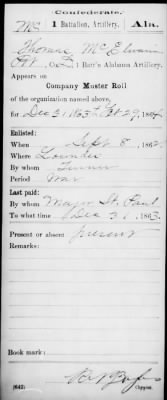 Confederate.
Mc 1 Battalion, Artillery, Ala.
Thomas McElvain
Pvt, Co. 1 Batt'n Alabama Artillery.
Appears on
Company Muster Roll
of the organization named above,
for Dec 31 1863 & Feb 29, 1864.
Enlisted:
When Sept 8, 186
Where Lowndes
By whom Turner
Period War
Last paid:
By whom Major St. Paul
To what time Dec 31, 1863.
Present or absent present
Remarks:
Book mark:
(642) Copyist.